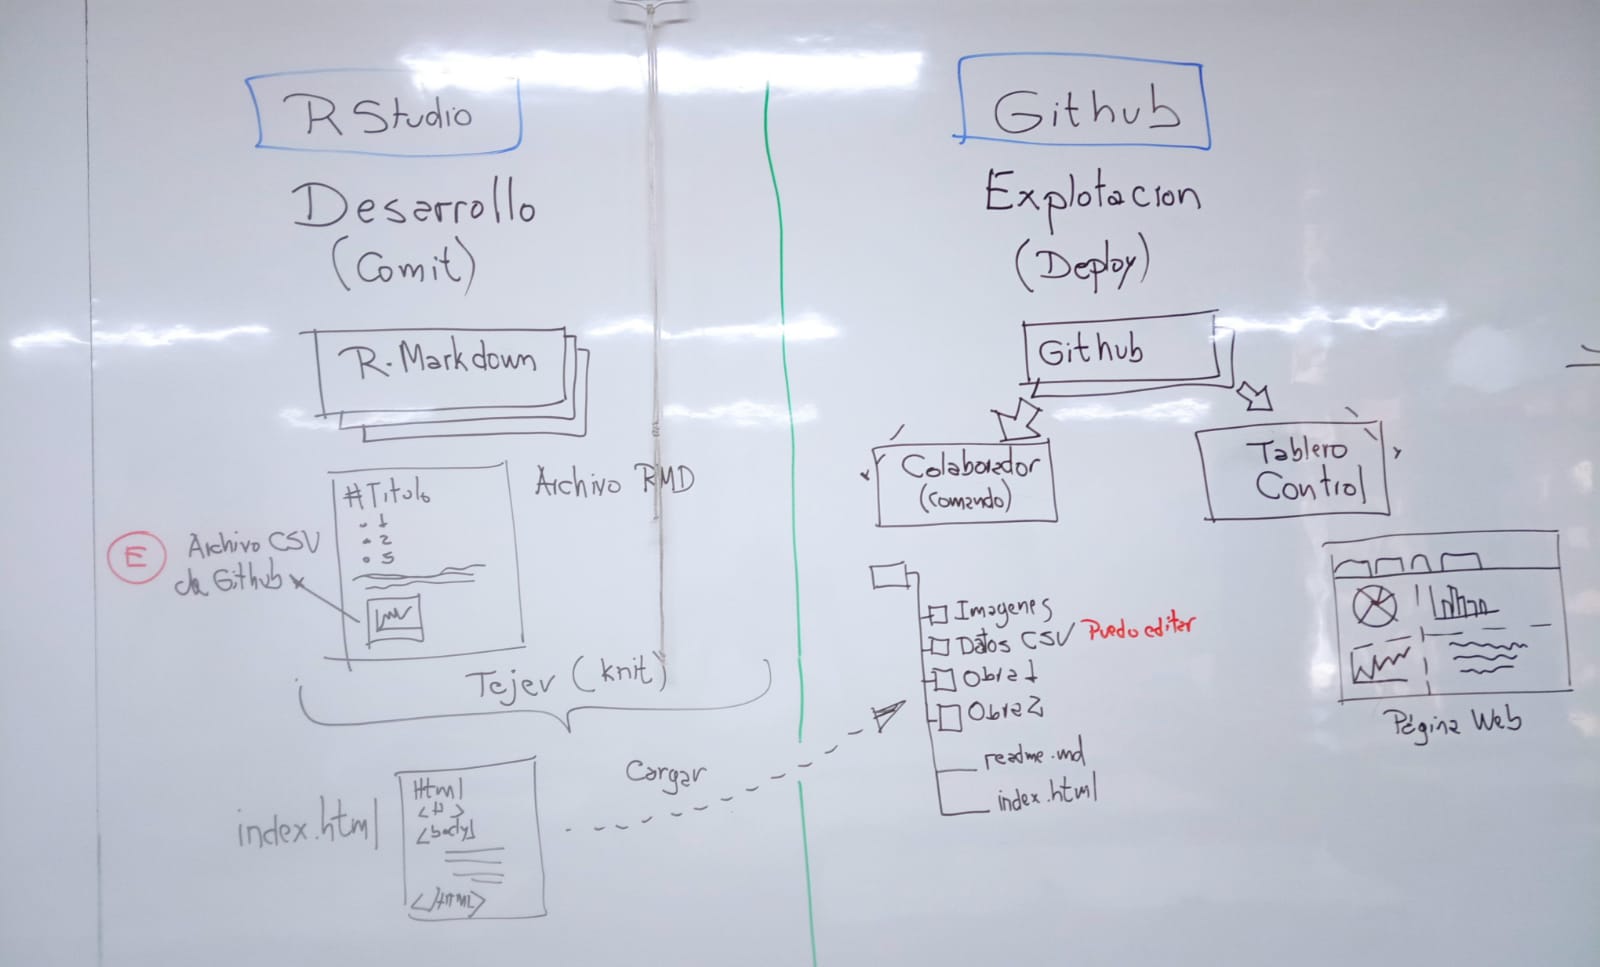 R Studio
Desarrollo
(Comit)
R-Markdown
Archivo RMD
#Titulo
• 1
• 2
• 5
E
Archivo CSV
de Github
Tejer (knit)
index.html
Html
<H>
<body
</HTML>
Cargar
Github
Explotacion
(Deploy)
Github
Colaborador
(Comando)
Tablero
Control
Imagenes
Datos CSV Puedo editar
Obra 1
Obra 2
readme.md
index.html
Página Web